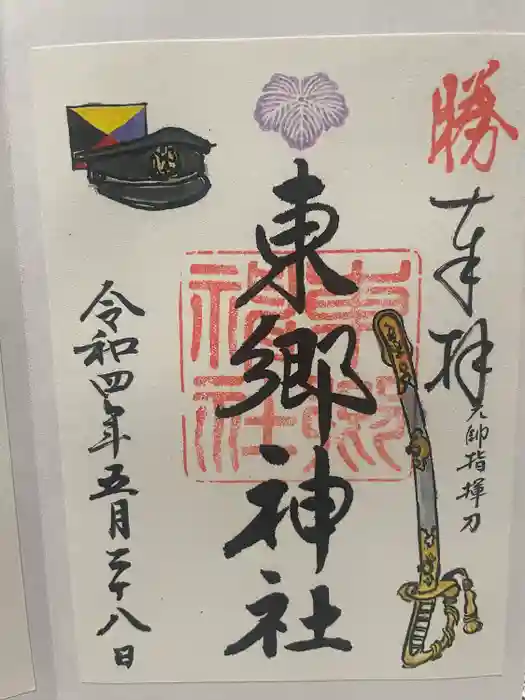 勝
奉拝
元帥指揮刀
東郷神社
東郷神社
令和四年五月二十八日